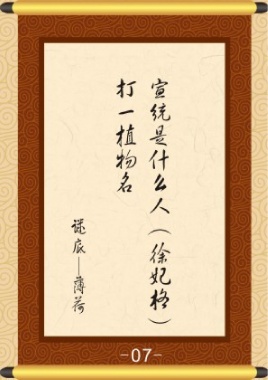 宣统是什么人（徐妃格）
打一植物名
谜底—薄荷
-07-